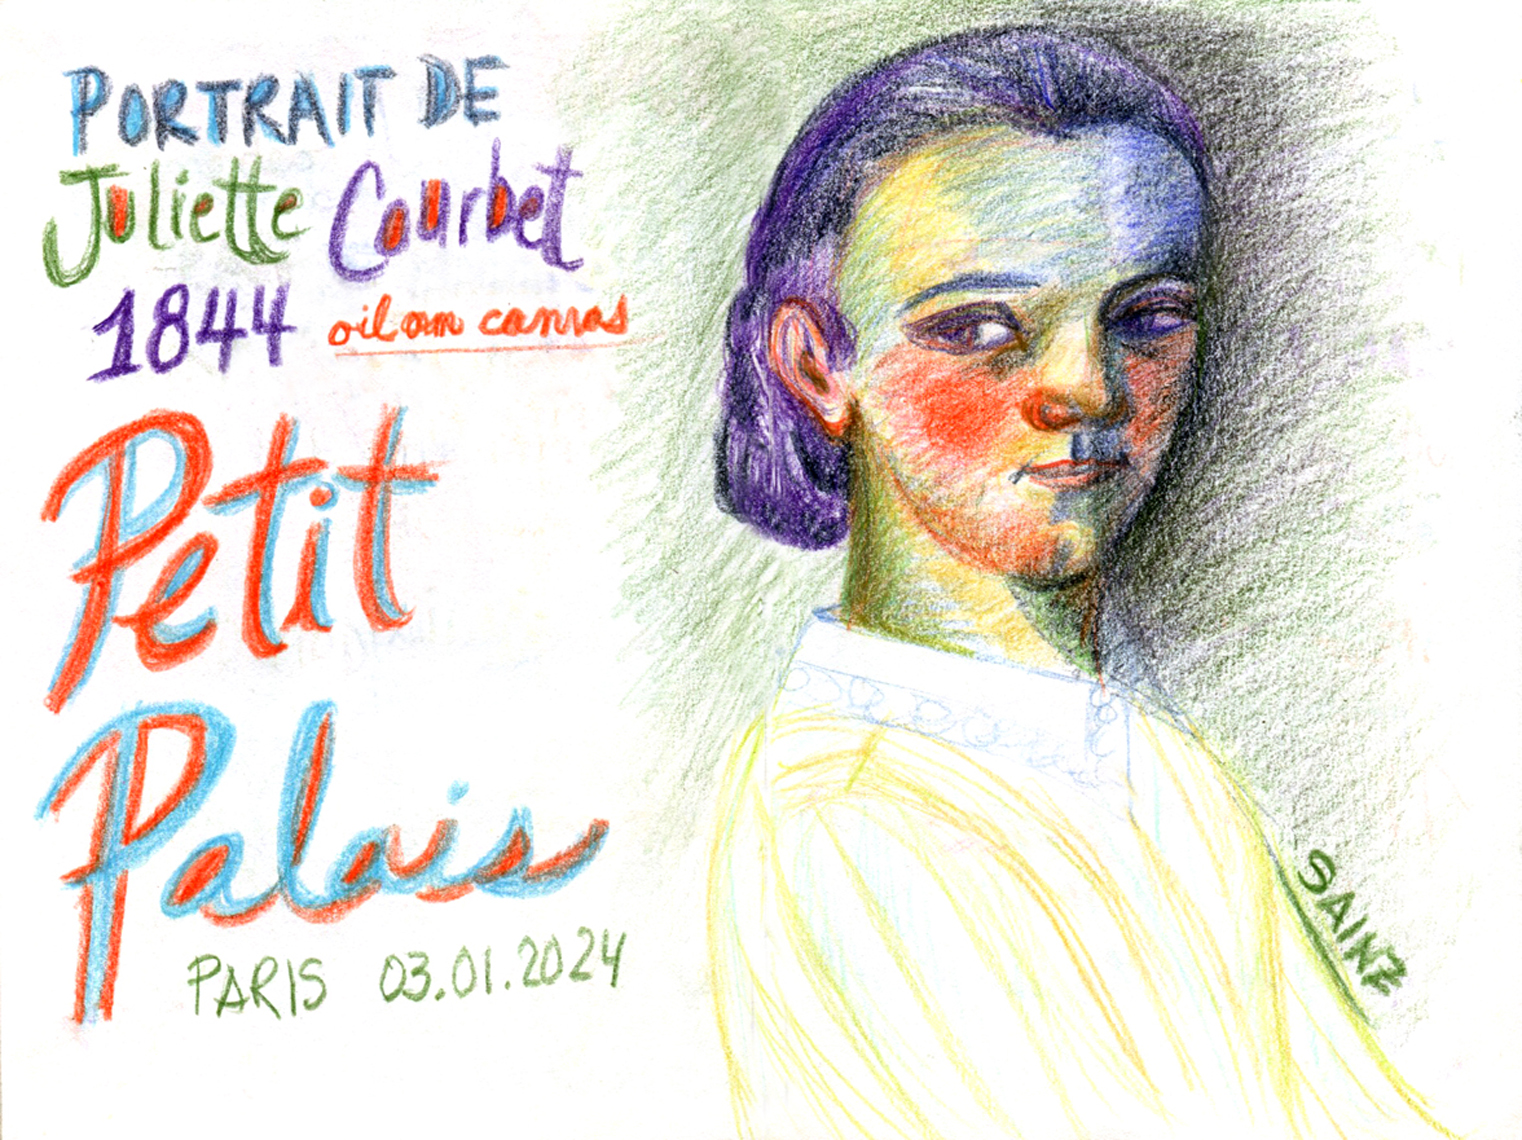 PORTRAIT DE
Juliette Courbet
1844 oil on canvas
Petit
Palais
PARIS 03.01.2024
SAINZ